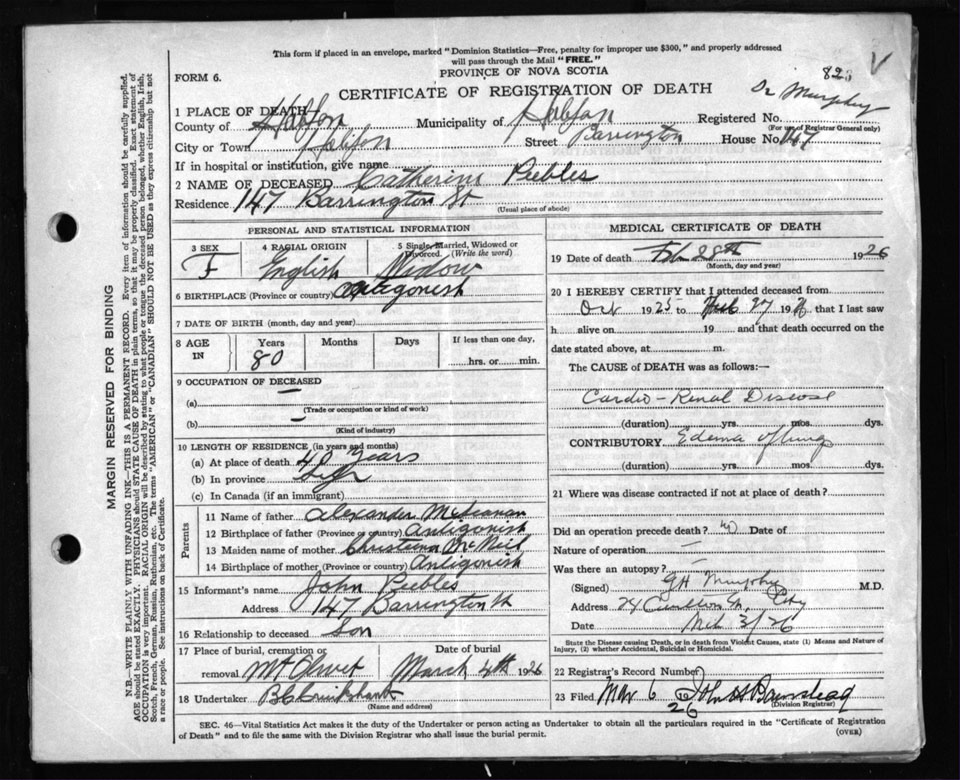 This form if placed in an envelope, marked "Dominion Statistics—Free, penalty for improper use $300," and properly addressed
will pass through the Mail "FREE."
PROVINCE OF NOVA SCOTIA
FORM 6.
CERTIFICATE OF REGISTRATION OF DEATH
Dr Murphy
V
1 PLACE OF DEATH
County of Halifax Municipality of Halifax Registered No.
(For use of Registrar General only)
City or Town Halifax Street Barrington House No. 147
If in hospital or institution, give name
2 NAME OF DECEASED Catherine Peebles
Residence 147 Barrington St
(Usual place of abode)
PERSONAL AND STATISTICAL INFORMATION
3 SEX F
4 RACIAL ORIGIN English
5 Single, Married, Widowed or Divorced. (Write the word) Widow
6 BIRTHPLACE (Province or country) Antigonish
7 DATE OF BIRTH (month, day and year)
8 AGE IN Years Months Days If less than one day,
80 hrs. or min.
9 OCCUPATION OF DECEASED —
(a)
(Trade or occupation or kind of work)
(b) —
(Kind of industry)
10 LENGTH OF RESIDENCE (in years and months)
(a) At place of death 40 Years
(b) In province Life
(c) In Canada (if an immigrant)
Parents
11 Name of father Alexander
12 Birthplace of father (Province or country) Antigonish
13 Maiden name of mother Christeena McNeil
14 Birthplace of mother (Province or country) Antigonish
15 Informant's name John Peebles
Address 147 Barrington St
16 Relationship to deceased Son
17 Place of burial, cremation or Date of burial
removal Mt Olivet March 4th 1926
18 Undertaker B C Cruikshank
(Name and address)
MEDICAL CERTIFICATE OF DEATH
19 Date of death Feb 28th 1926
(Month, day and year)
20 I HEREBY CERTIFY that I attended deceased from
Oct 1925 to Feb 27 1926 that I last saw
h alive on 19 and that death occurred on the
date stated above, at m.
The CAUSE of DEATH was as follows:—
Cardio-Renal Disease
(duration) yrs. mos. dys.
CONTRIBUTORY Edema of lung
(duration) yrs. mos. dys.
21 Where was disease contracted if not at place of death?
Did an operation precede death? no Date of
Nature of operation —
Was there an autopsy? —
(Signed) G H Murphy M.D.
Address 24 Carleton St, City
Date Mch 3/26
State the Disease causing Death, or in death from Violent Causes, state (1) Means and Nature of
Injury, (2) whether Accidental, Suicidal or Homicidal.
22 Registrar's Record Number
23 Filed Mar 6 1926 John H Barnstead
(Division Registrar)
SEC. 46—Vital Statistics Act makes it the duty of the Undertaker or person acting as Undertaker to obtain all the particulars required in the "Certificate of Registration
of Death" and to file the same with the Division Registrar who shall issue the burial permit.
(OVER)
MARGIN RESERVED FOR BINDING
N.B.—WRITE PLAINLY WITH UNFADING INK—THIS IS A PERMANENT RECORD. Every item of information should be carefully supplied.
AGE should be stated EXACTLY. PHYSICIANS should STATE CAUSE OF DEATH in plain terms, so that it may be properly classified. Exact statement of
OCCUPATION is very important. RACIAL ORIGIN will be described by stating to what people or tongue the deceased person belonged, whether English, Irish,
Scotch, French, German, Russian, Ruthenian, etc. The terms "AMERICAN" or "CANADIAN" SHOULD NOT BE USED as they express citizenship but not
a race or people. See instructions on back of Certificate.